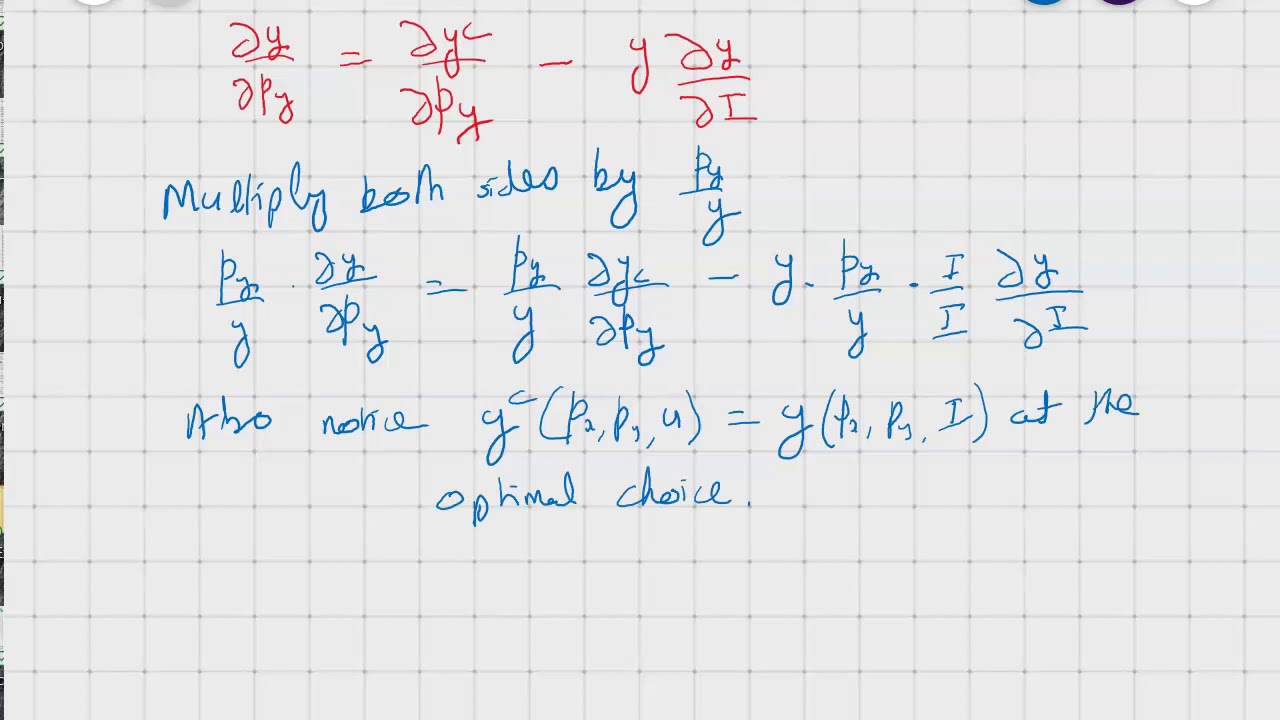 ∂y/∂py = ∂y^c/∂py − y ∂y/∂I
Multiply both sides by py/y
py/y · ∂y/∂py = py/y ∂y^c/∂py − y · py/y · I/I ∂y/∂I
Also notice y^c (px, py, u) = y(px, py, I) at the
optimal choice.